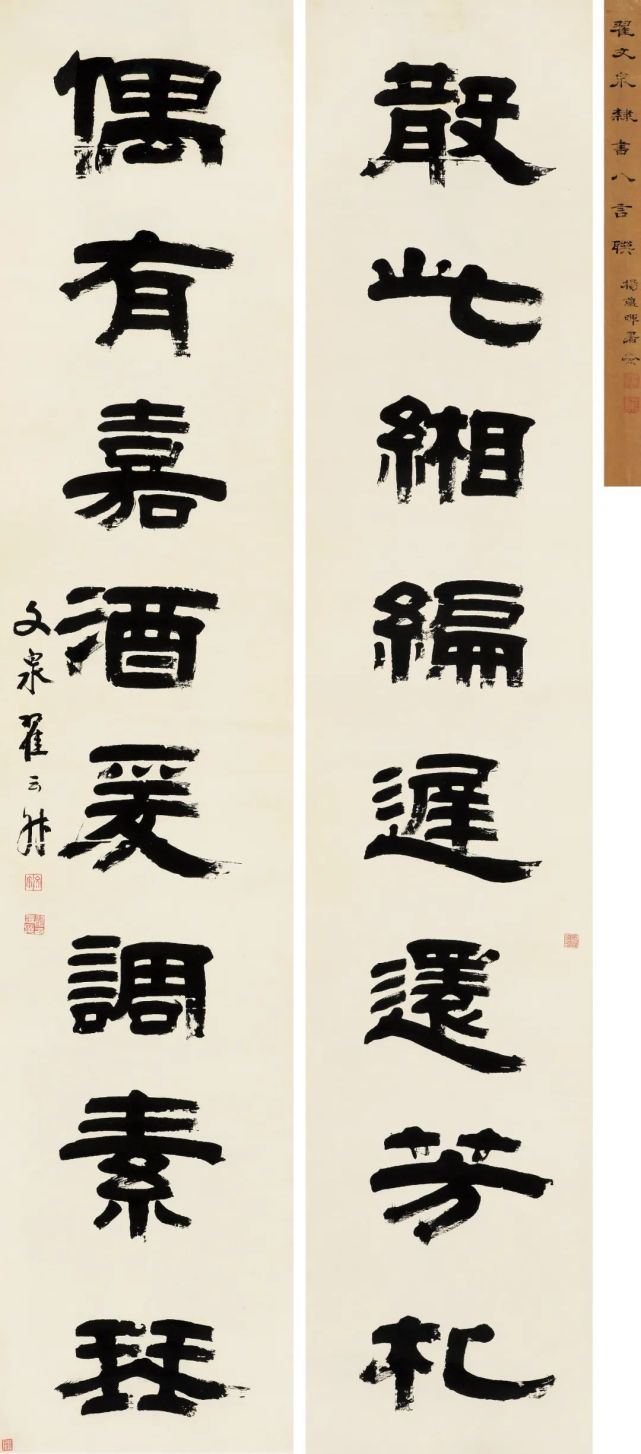 翟文泉隸書八言聯
散此緗編遲還芳札
偶有嘉酒爰調素琴
文泉翟云升